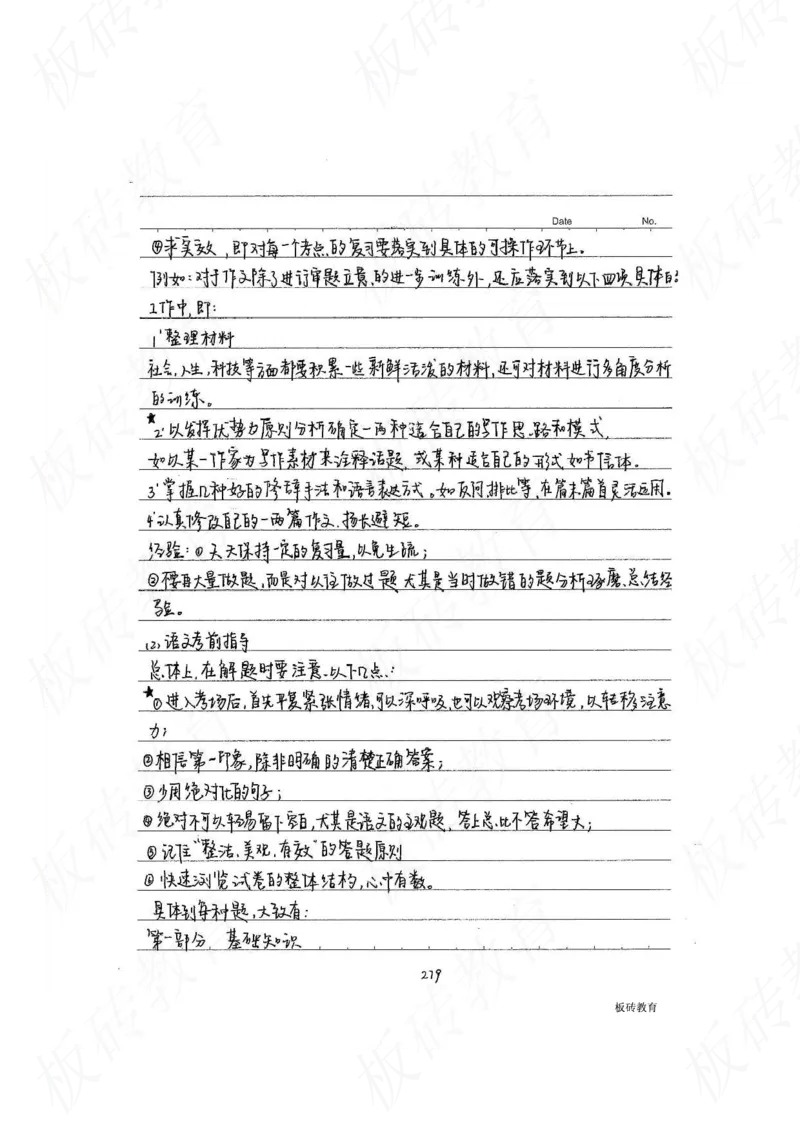 Date No.
④求实效，即对每一个考点的复习要落实到具体的可操作环节上。
例如：对于作文除了进行审题立意的进一步训练外，还应落实到以下四项具体的
工作中，即：
1'整理材料
社会，人生，科技等方面都要积累一些新鲜活泼的材料，还可对材料进行多角度分析
的训练。
★2'以发挥优势为原则分析确定一两种适合自己的写作思路和模式，
如以某一作家为写作素材来诠释话题，或某种适合自己的形式如书信体。
3'掌握几种好的修辞手法和语言表达方式。如反问，排比等，在篇末篇首灵活应用。
4'认真修改自己的一两篇作文，扬长避短。
经验：①天天保持一定的复习量，以免生疏；
②不要再大量做题，而是对以往做过题尤其是当时做错的题分析琢磨、总结经
验。
(2)语文考前指导
总体上，在解题时要注意以下几点：
★①进入考场后，首先平复紧张情绪，可以深呼吸，也可以观察考场环境，以转移注意
力；
②相信第一印象，除非明确的清楚正确答案；
③少用绝对化的句子；
④绝对不可以轻易留下空白，尤其是语文的主观题，答上总比不答希望大；
⑤记住“整洁，美观，有效”的答题原则
⑥快速浏览试卷的整体结构，心中有数。
具体到每种题，大致有：
第一部分 基础知识
279
板砖教育
板砖教育